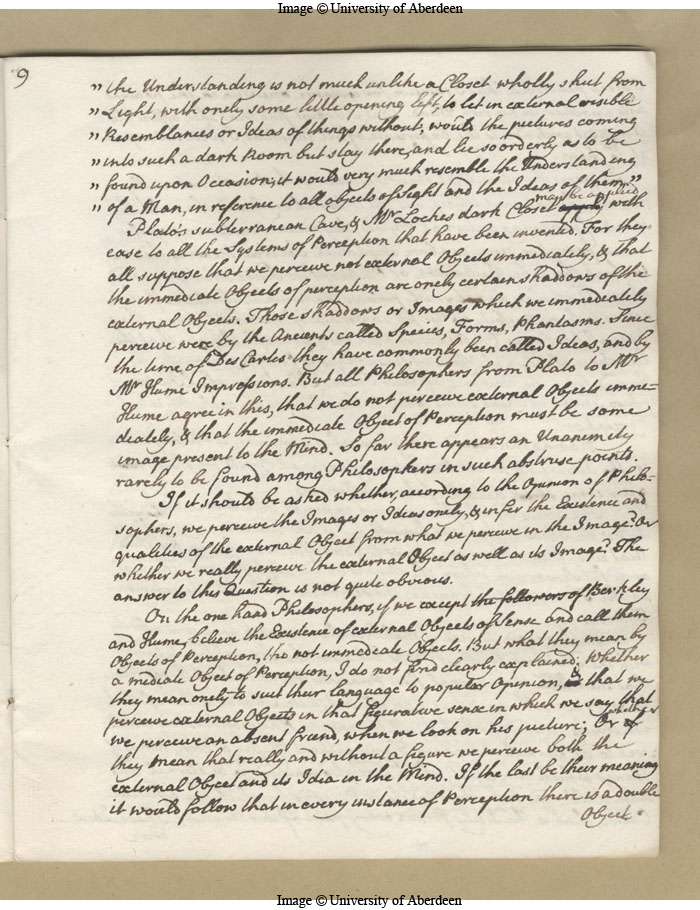 Image © University of Aberdeen
9
" the Understanding is not much unlike a Closet wholly shut from
" Light, with onely some little opening left, to let in external visible
" Resemblances or Ideas of things without; would the pictures coming
" into such a dark Room but stay there, and lie so orderly as to be
" found upon Occasion; it would very much resemble the Understanding
" of a Man, in reference to all objects of Sight and the Ideas of them."
may be applied
Plato's subterranean Cave, & Mr Lockes dark Closet with
ease to all the Systems of Perception that have been invented. For they
all suppose that we perceive not external Objects immediately, & that
the immediate Objects of perception are onely certain shaddows of the
external Objects. Those shaddows or Images which we immediately
perceive were by the Ancients called Species, Forms, Phantasms. Since
the time of Des Cartes they have commonly been called Ideas, and by
Mr Hume Impressions. But all Philosophers from Plato to Mr
Hume agree in this, that we do not perceive external Objects imme=
diately, & that the immediate Object of Perception must be some
image present to the Mind. So far there appears an Unanimity
rarely to be found among Philosophers in such abstruse points.
If it should be asked whether, according to the Opinion of Philo-
sophers, we perceive the Images or Ideas onely, & infer the Existence and
qualities of the external Object from what we perceive in the Image? Or
whether we really perceive the external Object as well as its Image? The
answer to this Question is not quite obvious.
On the one hand Philosophers, if we except the followers of Berkley
and Hume, believe the Existence of external Objects of Sense and call them
Objects of Perception, tho not immediate Objects. But what they mean by
a mediate Object of Perception, I do not find clearly explained; Whether
they mean onely to suit their language to popular Opinion, & that we
perceive external Objects in that figurative sense in which we say that
we perceive an absent friend, when we look on his picture; Or whether
they mean that really and without a figure we perceive both the
external Object and its Idia in the Mind. If the last be their meaning
it would follow that in every instance of Perception there is a double
Object
Image © University of Aberdeen